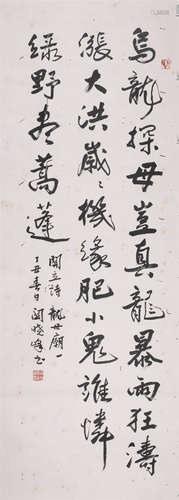 烏龍探母豈真龍暴雨狂濤
漲大洪歲歲機緣肥小鬼誰憐
綠野盡蒿蓬 闻立诗 龍母廟一
丁丑春日